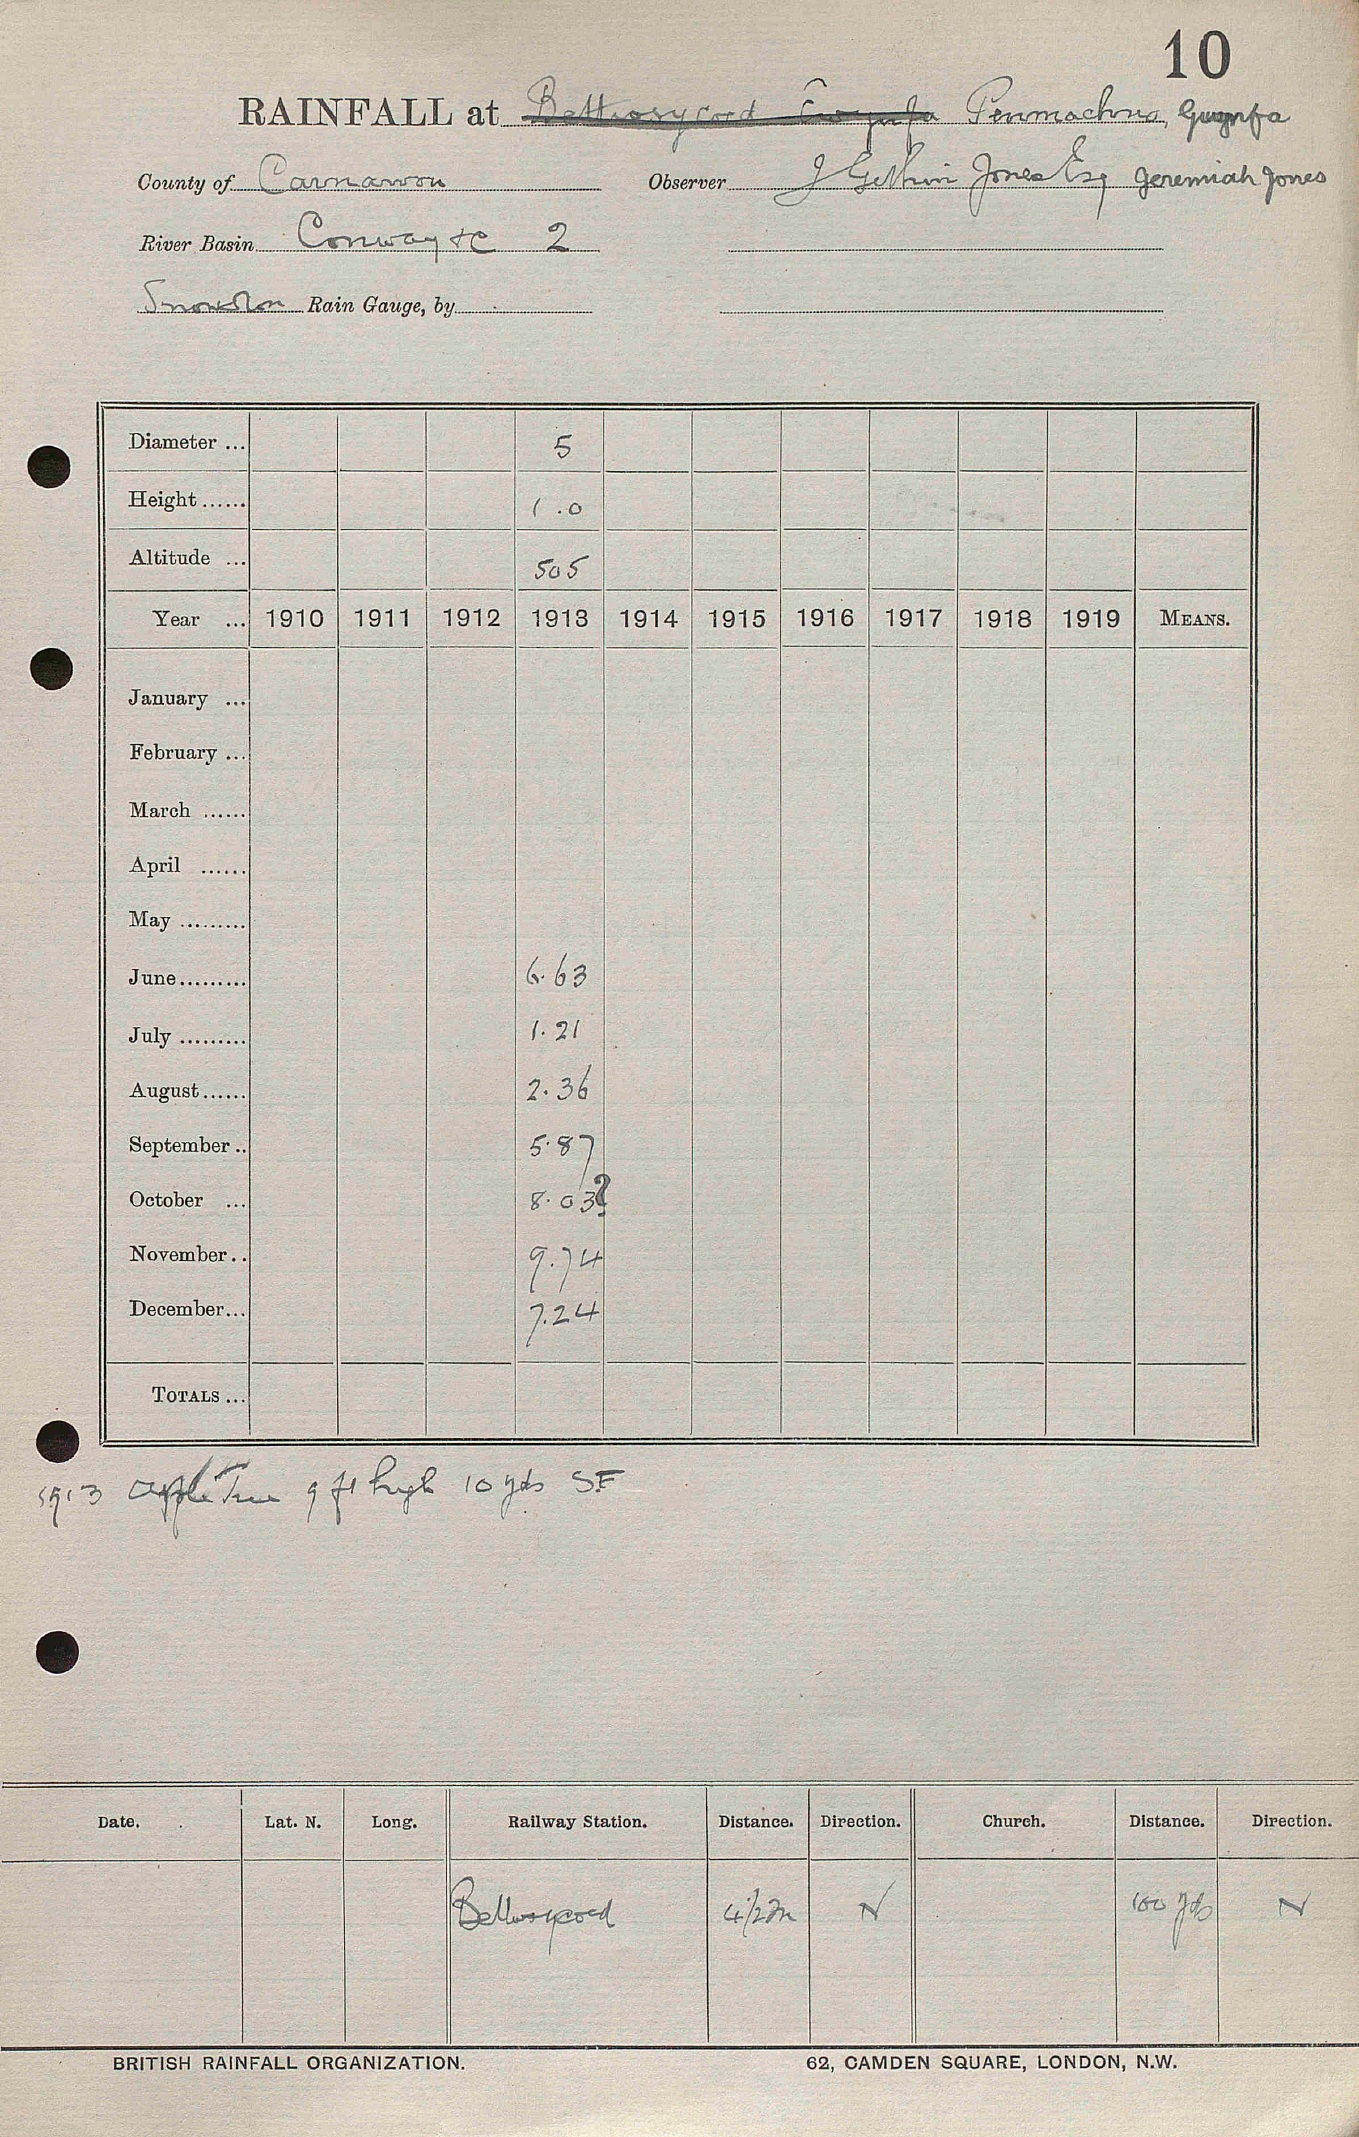 10
RAINFALL at Bettwsycoed Gwynfa Penmachno, Gwynfa
County of Carnarvon Observer J Gethin Jones Esq Jeremiah Jones
River Basin Conway &c 2
Snowdon Rain Gauge, by
Diameter ... 5
Height ...... 1.0
Altitude ... 505
Year ... 1910 1911 1912 1913 1914 1915 1916 1917 1918 1919 MEANS.
January ...
February ...
March ......
April ......
May .........
June......... 6.63
July ......... 1.21
August...... 2.36
September .. 5.87
October ... 8.03?
November.. 9.74
December... 7.24
TOTALS ...
1913 Apple Tree 9 ft high 10 yds SE
Date. Lat. N. Long. Railway Station. Distance. Direction. Church. Distance. Direction.
Bettwsycoed 4½m N 100 yds N
BRITISH RAINFALL ORGANIZATION. 62, CAMDEN SQUARE, LONDON, N.W.